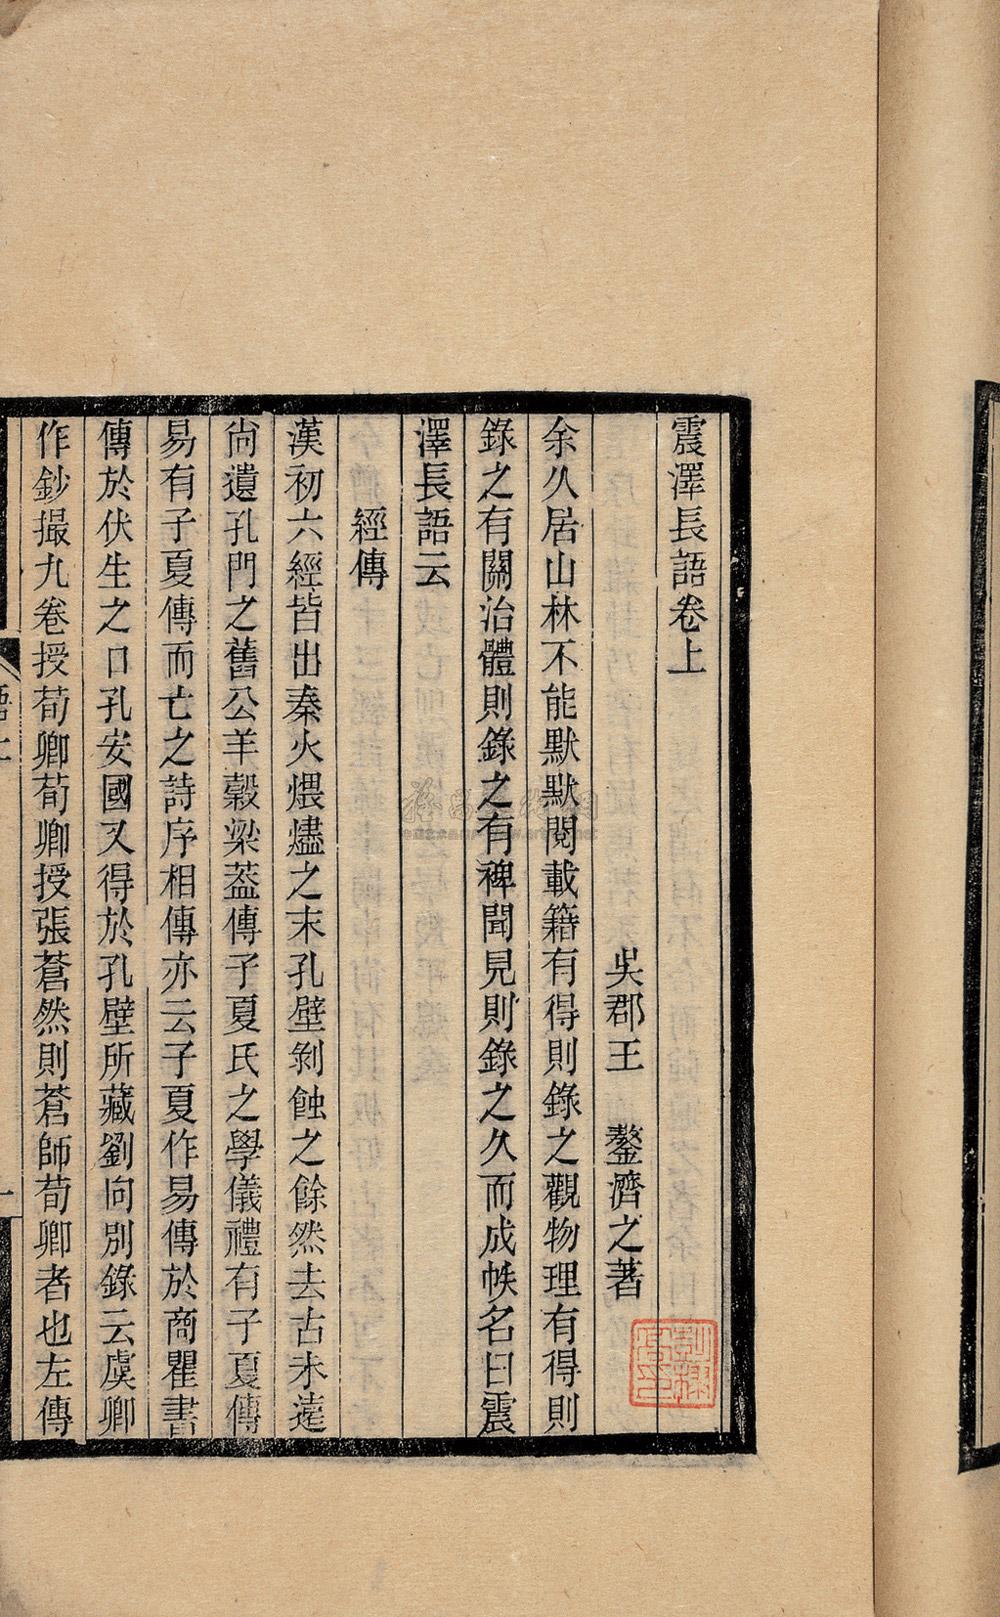 震澤長語卷上
吳郡王 鏊濟之著
余久居山林不能默默閱載籍有得則錄之觀物理有得則
錄之有關治體則錄之有裨聞見則錄之久而成帙名曰震
澤長語云
經傳
漢初六經皆出秦火煨燼之末孔壁剝蝕之餘然去古未遠
尙遺孔門之舊公羊穀梁葢傳子夏氏之學儀禮有子夏傳
易有子夏傳而亡之詩序相傳亦云子夏作易傳於商瞿書
傳於伏生之口孔安國又得於孔壁所藏劉向別錄云虞卿
作鈔撮九卷授荀卿荀卿授張蒼然則蒼師荀卿者也左傳
語上
一